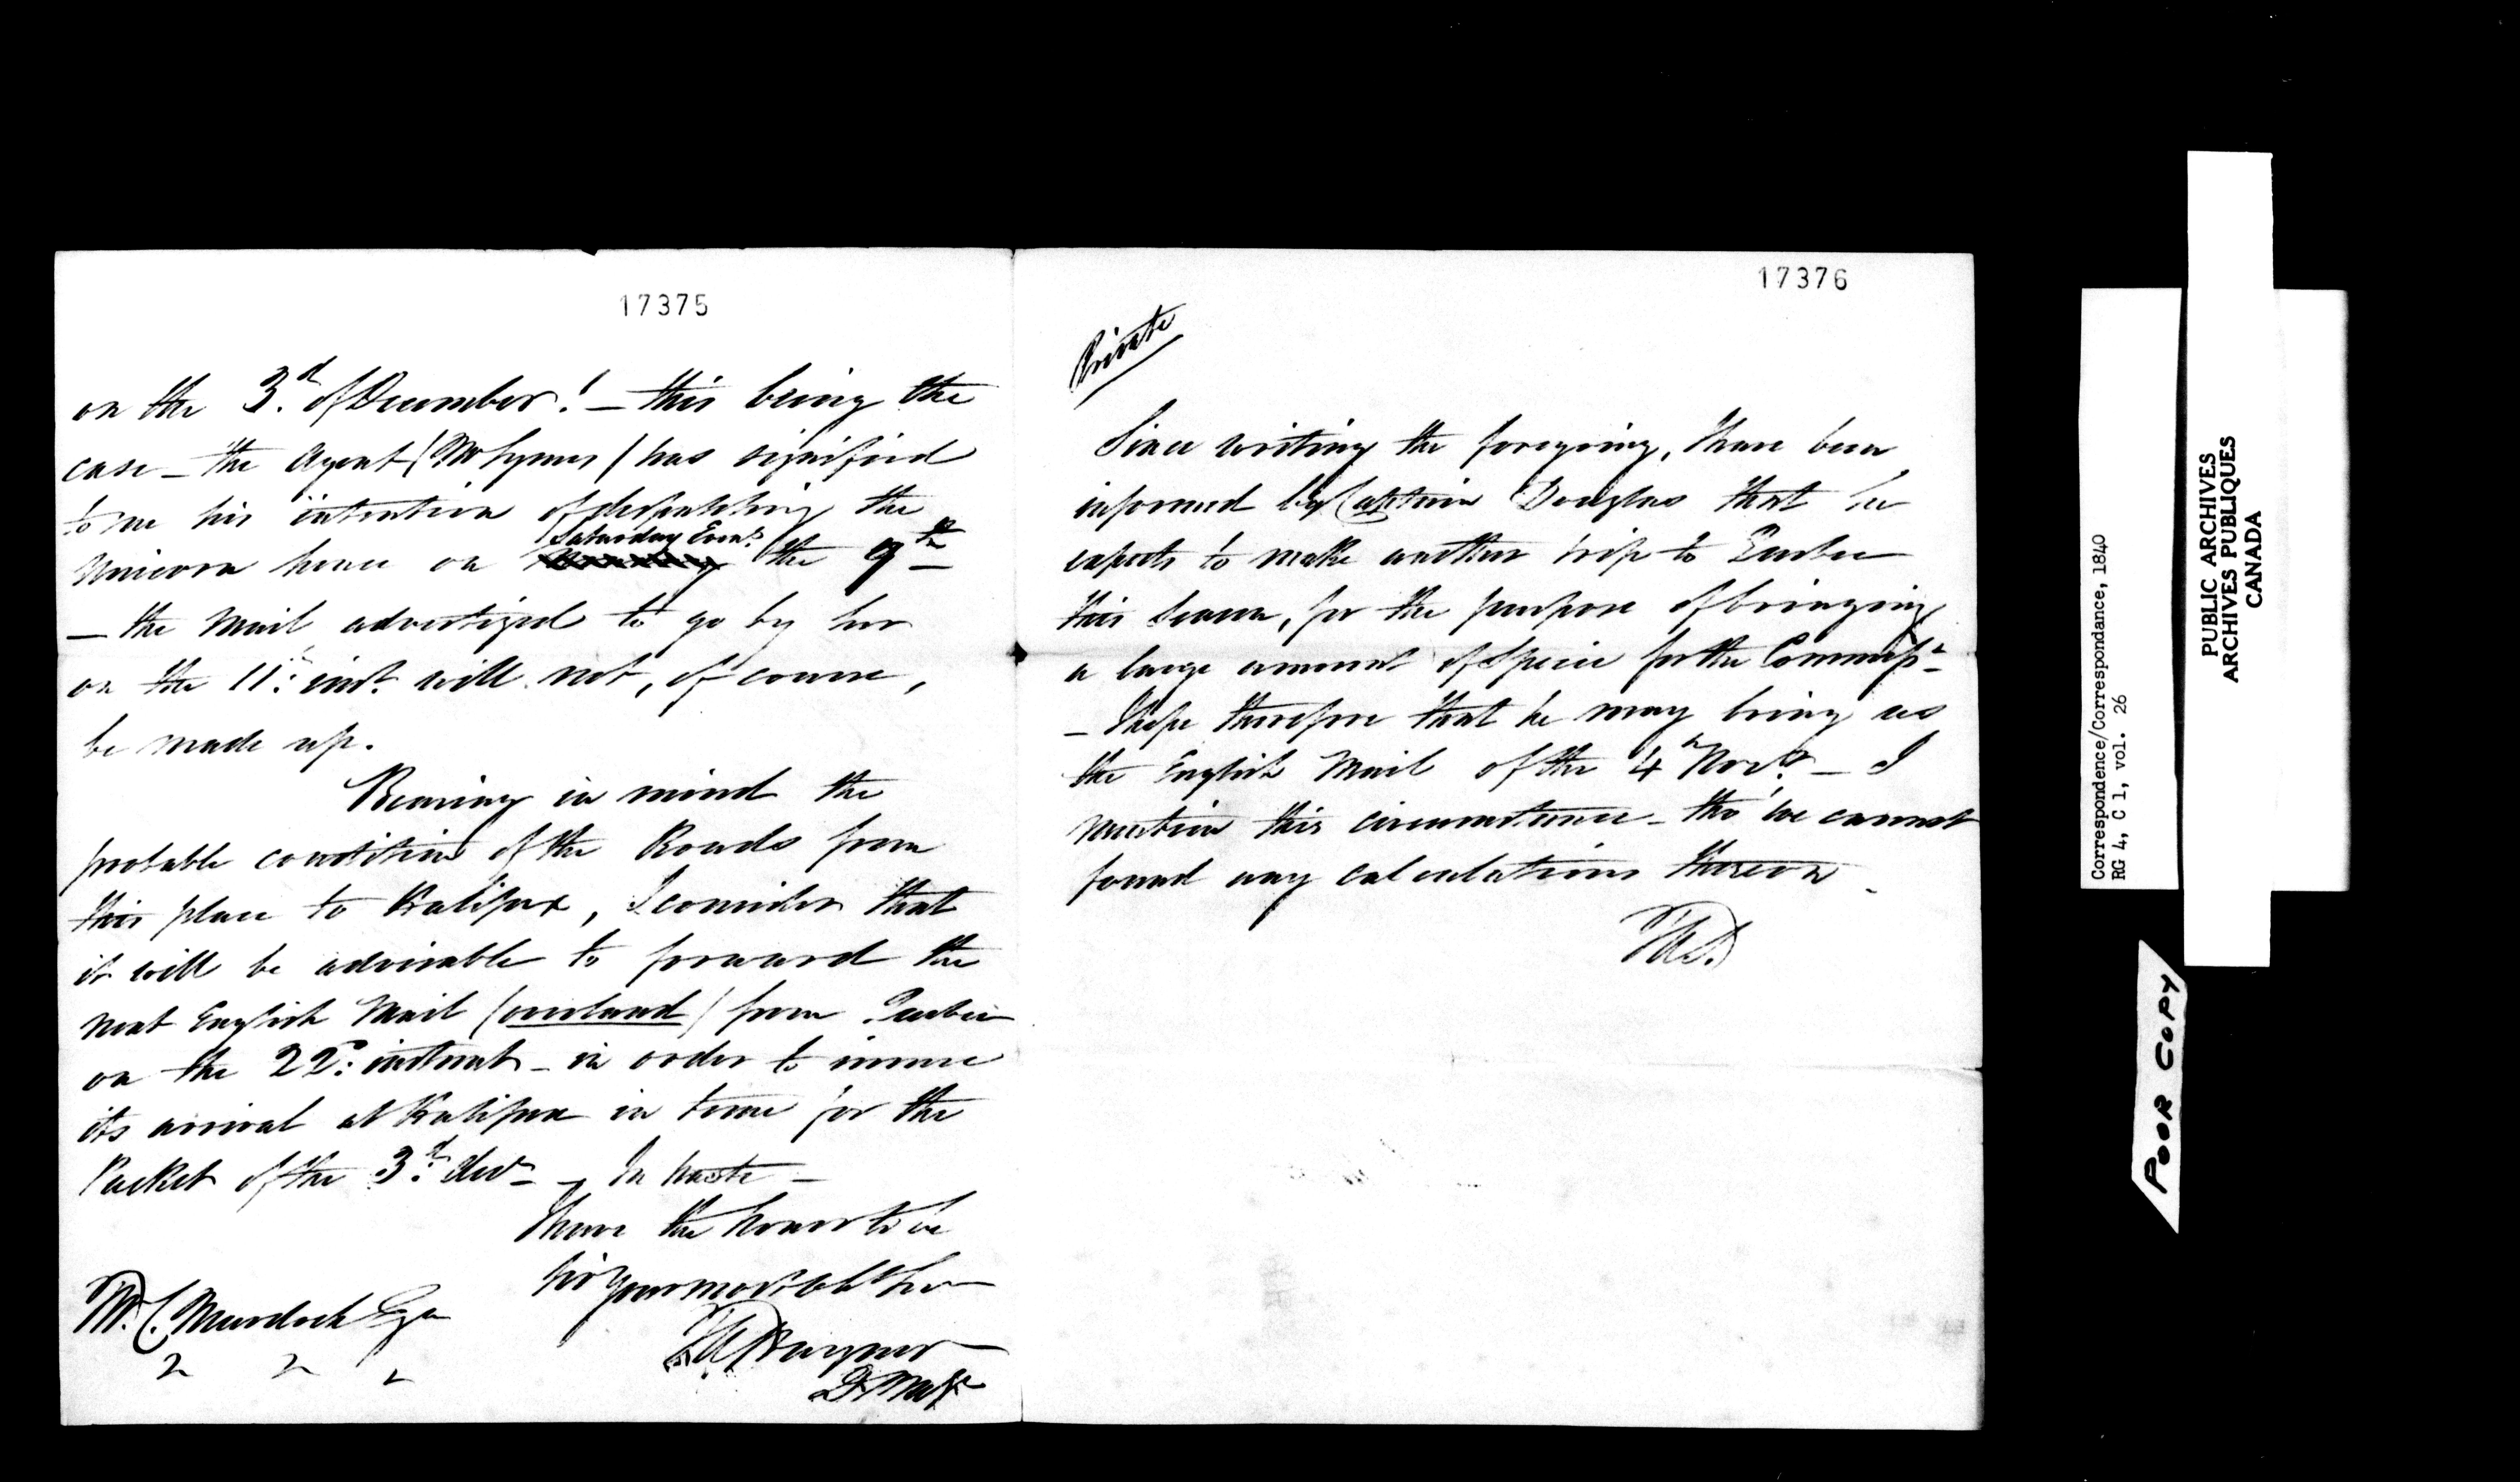 17375
on the 3.d of December! — this being the
case — the Agent (Mr Symes) has signified
to me his intention of despatching the
Unicorn hence on Saturday Eveng. the 7th —
— the Mail advertized to go by her
on the 11th: inst. will not, of course,
be made up.
Bearing in mind the
probable condition of the Roads from
this place to Halifax, I consider that
it will be advisable to forward the
next English Mail (overland) from Quebec
on the 22d: instant — in order to insure
its arrival at Halifax in time for the
Packet of the 3.d Decr — In haste —
I have the honor to be
Sir your most obt Ser
T A Stayner
D P M Gl
T. W. C. Murdoch Esqr
17376
Private
Since writing the foregoing, I have been
informed by Captain Douglas that he
expects to make another trip to Quebec
this season, for the purpose of bringing
a large amount of Specie for the Commisst
— I hope therefore that he may bring us
the English Mail of the 4th Novr. — I
mention this circumstance — tho' we cannot
found any calculations thereon —
TAS.
Correspondence/Correspondance, 1840
RG 4, C 1, vol. 26
PUBLIC ARCHIVES
ARCHIVES PUBLIQUES
CANADA
POOR COPY